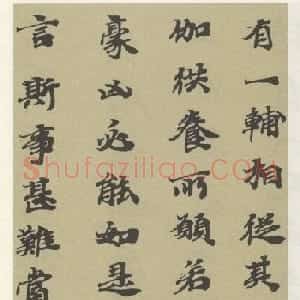 有一輔相從其
伽供養所願若
豪凶必能如是
言斯事甚難當
Shufaziliao.COM